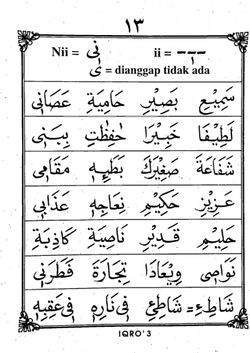 ١٣
Nii = نِىْ ii = ـِـ
ى = dianggap tidak ada
سَمِيْعٍ بَصِيْرٍ حَامِيَةِ عَصَانِى
لَطِيْفًا خَبِيْرًا حَفِظْتِ بِبَنِى
شَفَاعَةَ صَغِيْرَكَ بَطِيْهِ مَقَامِى
عَزِيْزٍ حَكِيْمٍ نِعَاجِهِ عَذَابِى
حَلِيْمٍ قَدِيْرٍ نَاصِيَةِ كَاذِبَةٍ
نَوَاصِى وِيْعَادًا تِجَارَةً فَطَرَنِى
شَاطِىءِ = شَاطِئِ فِى نَارِهِ فِى عَقِبِهِ
IQRO' 3